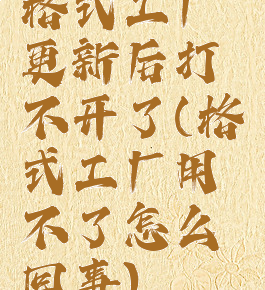 格式工厂
更新后打
不开了(格
式工厂用
不了怎么
回事)